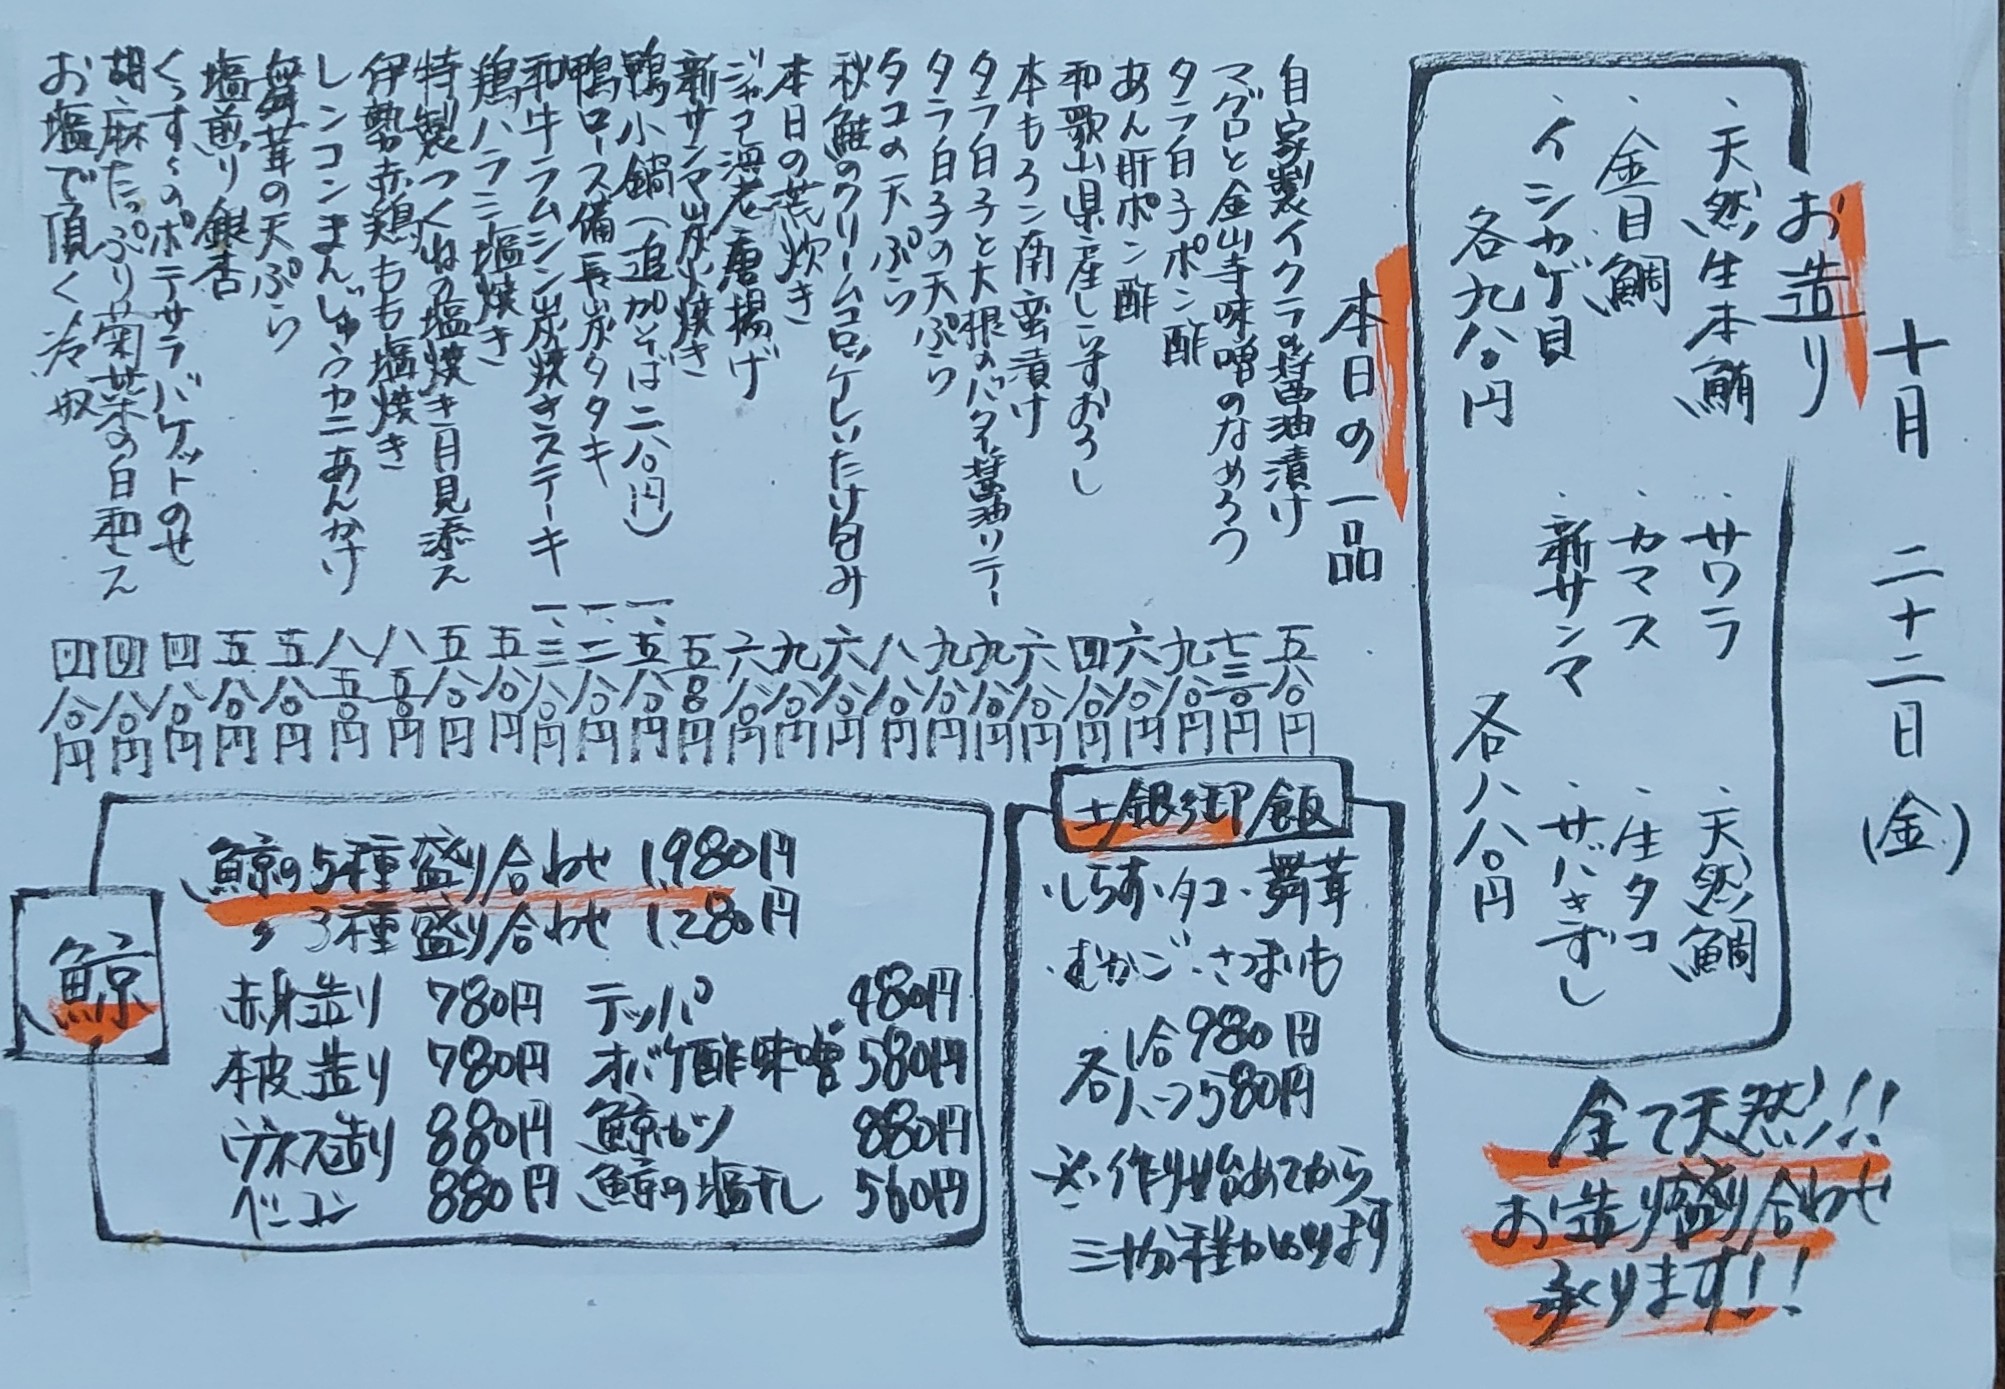 十月 二十二日 (金)
お造り
・天然生本鮪 ・サワラ ・天然鯛
・金目鯛 ・カマス ・生タコ
・イシカゲ貝 ・新サンマ ・サバきずし
各九八〇円 各八八〇円
全て天然!!
お造り盛り合わせ
承ります!!
本日の一品
自家製イクラの醤油漬け 五八〇円
マグロと金山寺味噌のなめろう 七三〇円
タラ白子ポン酢 九八〇円
あん肝ポン酢 六八〇円
和歌山県産しらすおろし 四八〇円
本もろこ南蛮漬け 六八〇円
タラ白子と大根のバター醤油ソテー 九八〇円
タラ白子の天ぷら 九八〇円
タコの天ぷら 八八〇円
秋鮭のクリームコロッケしいたけ包み 六八〇円
本日の荒炊き 九八〇円
ジャコ海老唐揚げ 六八〇円
新サンマ炭火焼き 五八〇円
鴨小鍋(追加そば二八〇円) 一、五八〇円
鴨ロース備長炭タタキ 一、二八〇円
和牛ラムシン炭焼きステーキ 一、三八〇円
鶏ハラミ塩焼き 五八〇円
特製つくねの塩焼き月見添え 五八〇円
伊勢赤鶏もも塩焼き 八五〇円
レンコンまんじゅうカニあんかけ 八五〇円
舞茸の天ぷら 五八〇円
塩煎り銀杏 五八〇円
くんすーのポテサラバケットのせ 四八〇円
胡麻たっぷり菊菜の白和え 四八〇円
お塩で頂く冷奴 四八〇円
土鍋御飯
・しらす・タコ・舞茸
・むかご・さつまいも
各 1合 980円
ハーフ 580円
※作り始めてから
三十分程かかります
鯨
鯨の5種盛り合わせ 1,980円
〃 3種盛り合わせ 1,280円
赤身造り 780円 テッパ 480円
本皮造り 780円 オバケ酢味噌 580円
ウネス造り 880円 鯨カツ 880円
ベーコン 880円 鯨の塩干し 560円